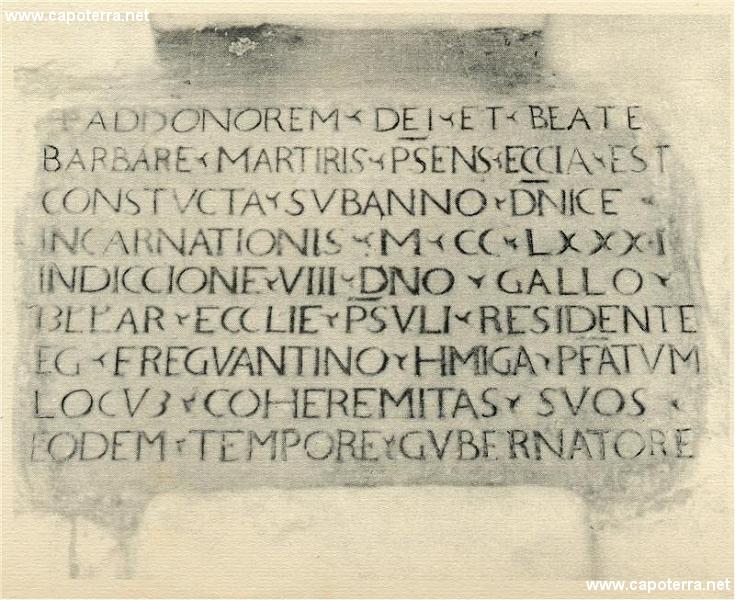 www.capoterra.net
ADDONOREM DEI ET BEATE
BARBARE MARTIRIS PSENS ECCIA EST
CONSTVCTA SVBANNO DNICE
INCARNATIONIS M CC LXXXI
INDICCIONE VIII DNO GALLO
ECCLIE PSVLI RESIDENTE
FREGVANTINO HMIGA PFATVM
LOCVB COHEREMITAS SVOS
EODEM TEMPORE GVBERNATORE
www.capoterra.net